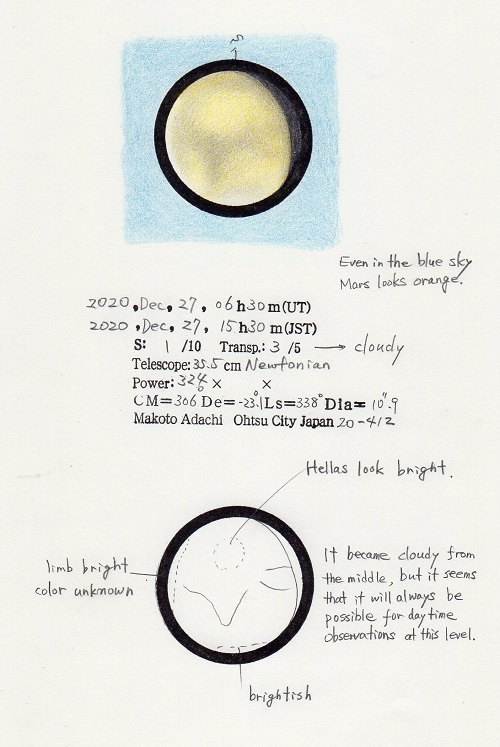 S
Even in the blue sky
Mars looks orange.
2020, Dec, 27, 06h30m(UT)
2020, Dec, 27, 15h30m(JST)
S: 1 /10 Transp.: 3 /5 → cloudy
Telescope: 35.5 cm Newtonian
Power: × ×
CM=306 De=-23.1 Ls=338° Dia=10".9
Makoto Adachi Ohtsu City Japan 20-412
Hellas look bright.
limb bright
color unknown
It became cloudy from
the middle, but it seems
that it will always be
possible for daytime
observations at this level.
brightish